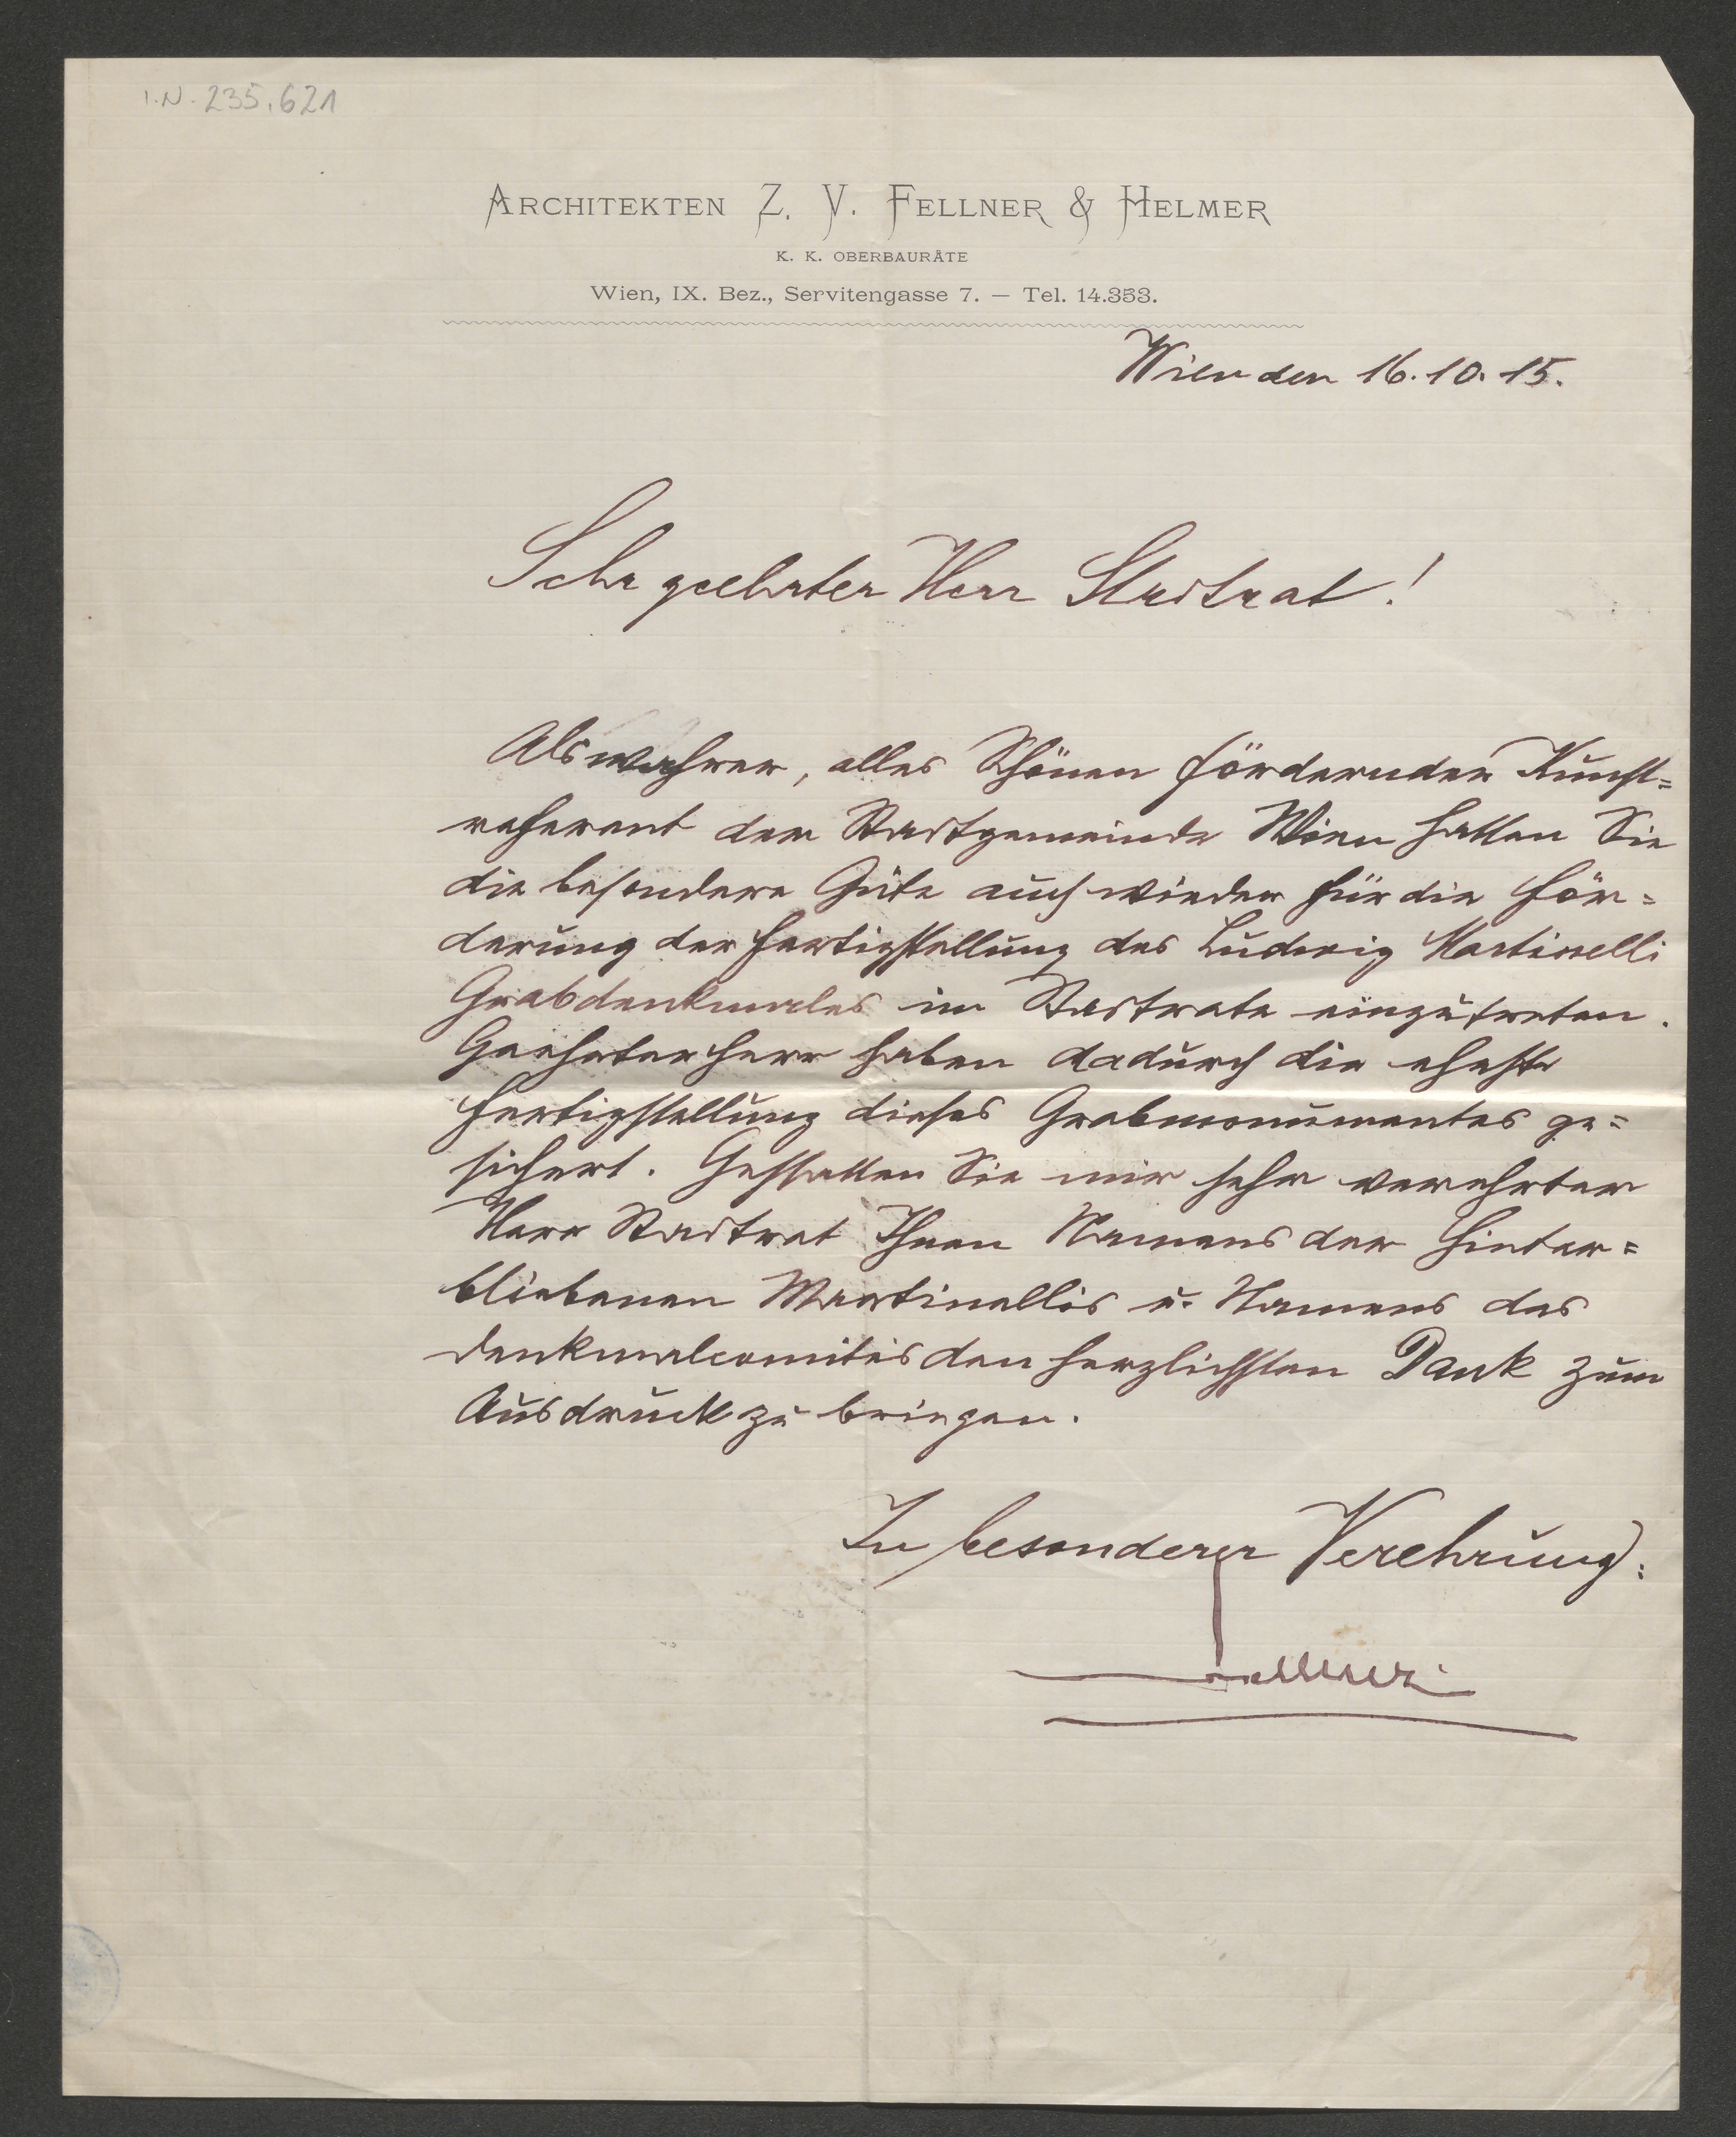 I.N. 235.621
ARCHITEKTEN Z. V. FELLNER & HELMER
K. K. OBERBAURÄTE
Wien, IX. Bez., Servitengasse 7. — Tel. 14.353.
Wien den 16.10.15.
Sehr geehrter Herr Stadtrat!
Als wahrer, alles Schönen fördernder Kunst=
referent der Stadtgemeinde Wien hatten Sie
die besondere Güte auch wieder für die För=
derung der Fertigstellung des Ludwig Martinelli
Grabdenkmales im Stadtrate einzutreten.
Geehrter Herr haben dadurch die eheste
Fertigstellung dieses Grabmonumentes ge=
sichert. Gestatten Sie mir sehr verehrter
Herr Stadtrat Ihnen Namens der Hinter=
bliebenen Martinellis u. Namens des
Denkmalcomités den herzlichsten Dank zum
Ausdruck zu bringen.
In besonderer Verehrung:
Fellner